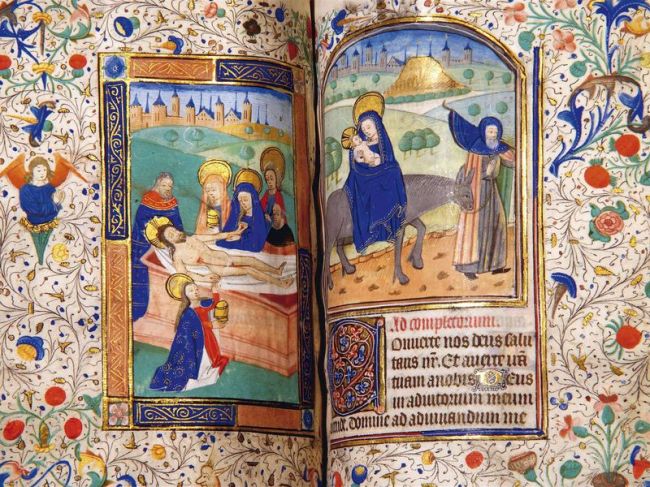 Ad completorium.
Conuerte nos deus salu
taris nr̃. Et auerte irã
tuam a nobis Deus
in adiutorium meum
tende. domine ad adiuuandum me